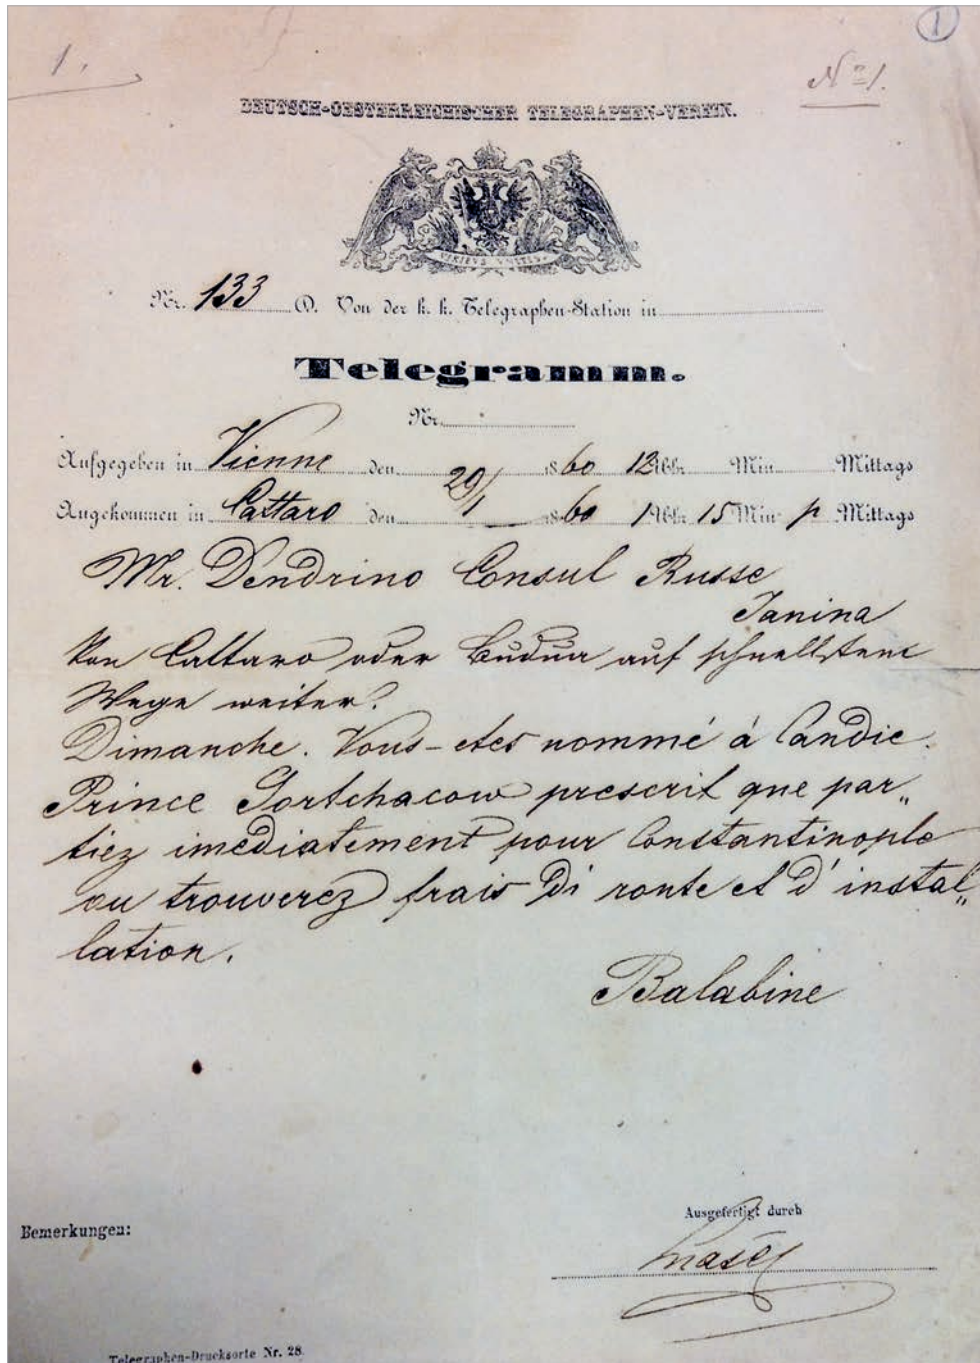 1
1.
Nº 1.
DEUTSCH-OESTERREICHISCHER TELEGRAPHEN-VEREIN.
VIRIBUS UNITIS
Nr. 133 D. Von der k. k. Telegraphen-Station in
Telegramm.
Nr.
Aufgegeben in Vienne den 29/1 1860 12 Uhr Min Mittags
Angekommen in Cattaro den 1860 1 Uhr 15 Min p Mittags
Mr. Dendrino Consul Russe
Janina
Von Cattaro oder Budua auf schnellstem
Wege weiter.
Dimanche. Vous-etes nommé à Candie.
Prince Gortchacow prescrit que par„
tiez imediatement pour Constantinople
ou trouverez frais di route et d'instal„
lation.
Balabine
Ausgefertigt durch
Bemerkungen:
Telegraphen-Drucksorte Nr. 28.